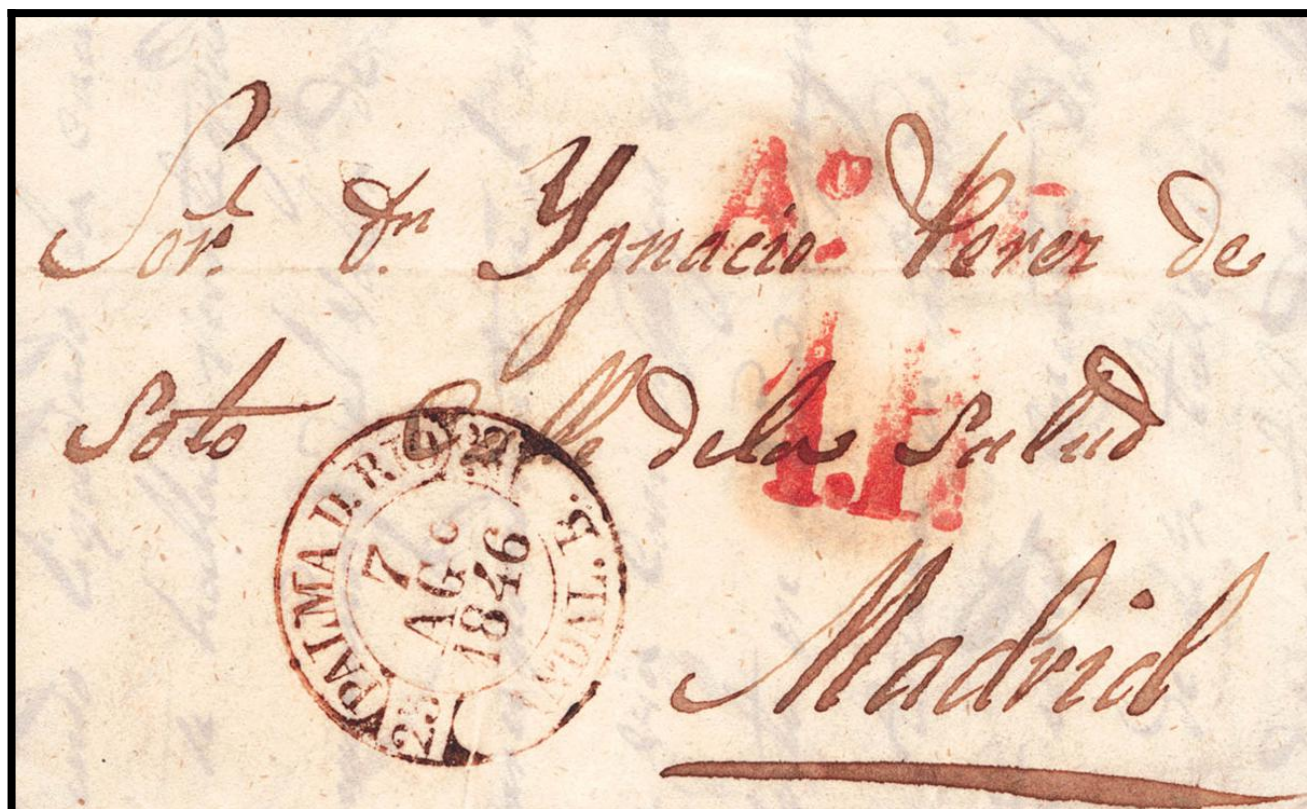 Sor. Dn. Ygnacio Perez de
Soto Calle dela Salud
Madrid
PALMA D. RIO
7
AGo
1846